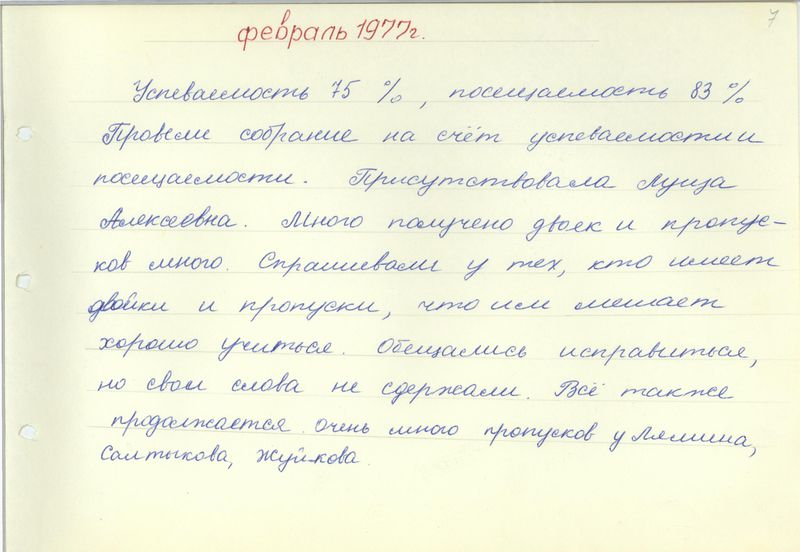 7
февраль 1977г.
Успеваемость 75 %, посещаемость 83 %
Провели собрание на счёт успеваемости и
посещаемости. Присутствовала Луиза
Алексеевна. Много получено двоек и пропус-
ков много. Спрашивали у тех, кто имеет
двойки и пропуски, что им мешает
хорошо учиться. Обещались исправиться,
но свои слова не сдержали. Всё также
продолжается. Очень много пропусков у Лямина,
Салтыкова, Жуйкова.